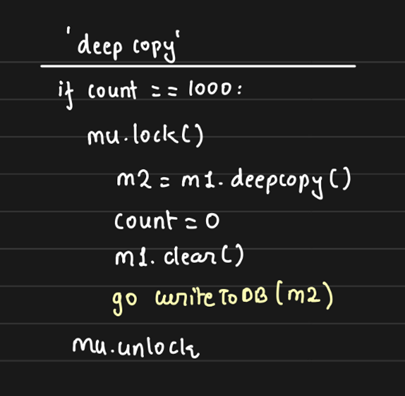 'deep copy'
if count == 1000:
mu.lock()
m2 = m1.deepcopy()
count = 0
m1.clear()
go writeToDB(m2)
mu.unlock